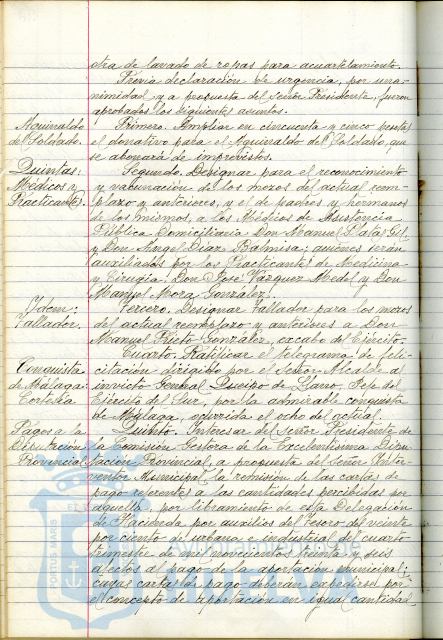 otra de lavado de ropas para acuartelamiento.
Previa declaración de urgencia, por una-
nimidad y a propuesta del Señor Presidente, fueron
aprobados los siguientes asuntos.
Aguinaldo
del Soldado.
Primero. Ampliar en cincuenta y cinco pesetas
el donativo para el Aguinaldo del Soldado, que
se abonará de imprevistos.
Quintas:
Médicos y
Practicantes.
Segundo. Designar para el reconocimiento
y vacunación de los mozos del actual reem-
plazo y anteriores, y el de padres y hermanos
de los mismos, a los Médicos de Asistencia
Pública Domiciliaria Don Manuel Salas Gil
y Don Angel Diaz Balmisa; quienes serán
auxiliados por los Practicantes de Medicina
y Cirugía, Don José Vázquez Medel y Don
Manuel Mora González.
Idem:
Tallador.
Tercero. Designar Tallador para los mozos
del actual reemplazo y anteriores a Don
Manuel Prieto González, excabo del Ejército.
Conquista
de Málaga:
Cortesía
Cuarto. Ratificar el telegrama de feli-
citación dirigido por el Señor Alcalde al
invicto General Queipo de Llano, Jefe del
Ejército del Sur, por la admirable conquista
de Málaga, ocurrida el ocho del actual.
Pagos a la
Diputación
Provincial
Quinto. Interesar del Señor Presidente de
la Comisión Gestora de la Excelentísima Dipu-
tación Provincial, a propuesta del Señor Inter-
ventor Municipal, la remisión de las cartas de
pago referentes a las cantidades percibidas por
aquella, por libramiento de esta Delegación
de Hacienda por auxilios del Tesoro del veinte
por ciento de urbana e industrial del cuarto
trimestre de mil novecientos treinta y seis
afectos al pago de la aportación municipal;
cuyas cartas de pago deberán expedirse por
el concepto de aportación en igual cantidad
PORTUS MARIS